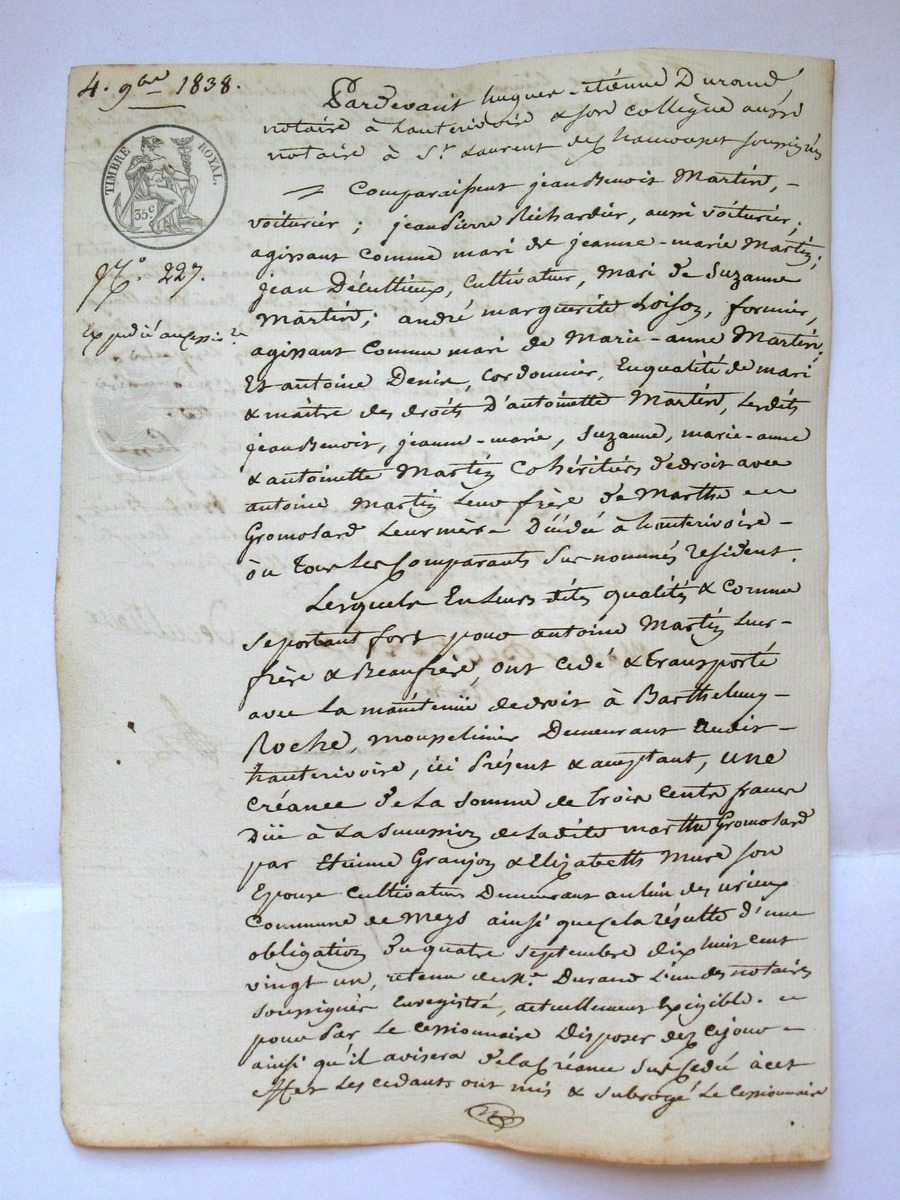 4. 9bre 1838.
TIMBRE ROYAL.
35c
No. 227.
Expédié au cessre
Pardevant hugues-étienne Durand
notaire à hauterivoire & son collègue aussi
notaire à St Laurent de Chamousset soussignés
= Comparaissent jean Benoit Martin, -
voiturier ; jean Pierre Richardier, aussi voiturier,
agissant comme mari de jeanne-marie Martin;
jean Décultieux, Cultivateur, Mari de Suzanne
Martin; andré marguerite Loison, fermier,
agissant comme mari de Marie-anne Martin;
Et antoine Denis, Cordonnier, En qualité de mari
& maître des droits D'antoinette Martin, Lesdits
jean Benoit, jeanne-marie, Suzanne, marie-anne
& antoinette Martin Cohéritiers de droit avec
antoine Martin Leur frère de Marthe
Gromolard Leur mère Décédée à hauterivoire -
où tous les Comparants Sus nommés resident.
Lesquels En leurs dites qualités & Comme
Se portant fort pour antoine Martin Leur
frère & Beaufrère, ont cédé & transporté
avec La maintenüe de droit à Barthelemy
Roche, Demeurant audit
hauterivoire, ici Présent & acceptant, une
Créance de La somme de trois Cents francs
Düe à La succession de Ladite marthe Gromolard
par Etienne Granjon & Elizabeth Mure son
Epouse Cultivateurs Demeurant au lieu des
Commune de Meys ainsi que cela résulte d'une
obligation du quatre Septembre dix huit cent
vingt un, retenu de Me. Durand L'un des notaires
soussignés Enregistré, actuellement Exigible.
pour Par Le Cessionnaire Disposer dès ce jour
ainsi qu'il avisera de la Créance sus Cedée à cet
Effet Les cédants ont mis & subrogé Le Cessionnaire